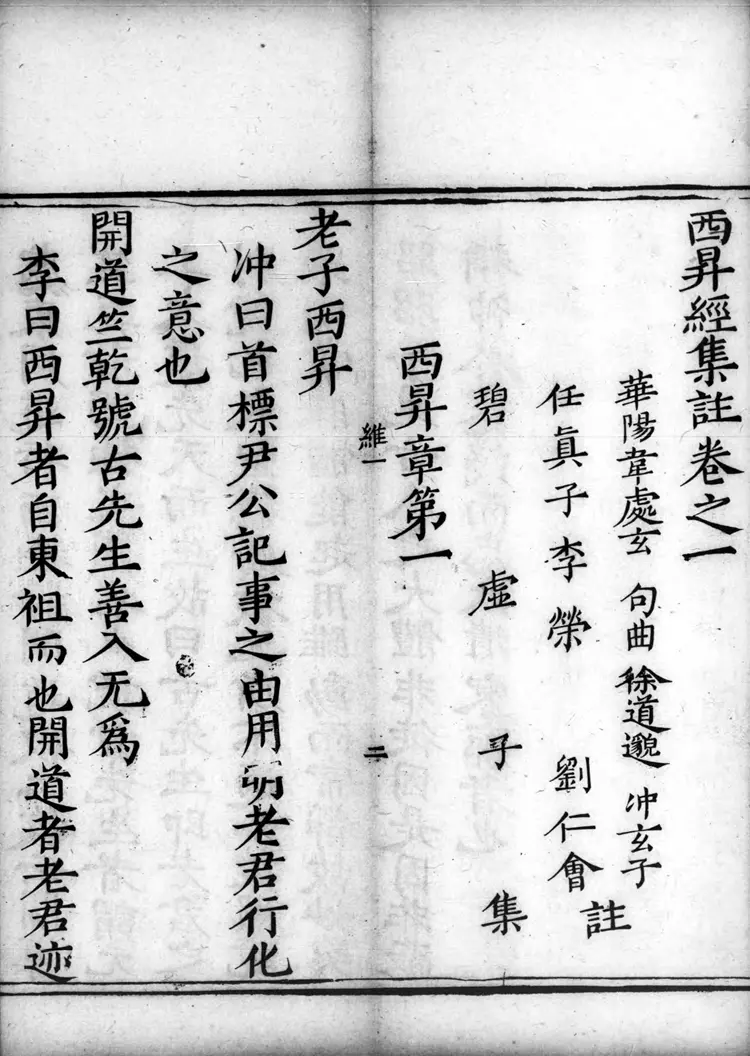 西昇經集註卷之一
華陽韋處玄 句曲徐道邈 冲玄子
任眞子李榮 劉仁會 註
碧虛子 集
西昇章第一
維一 二
老子西昇
冲曰首標尹公記事之由用明老君行化
之意也
開道竺乾號古先生善入无爲
李曰西昇者自東徂而也開道者老君迹